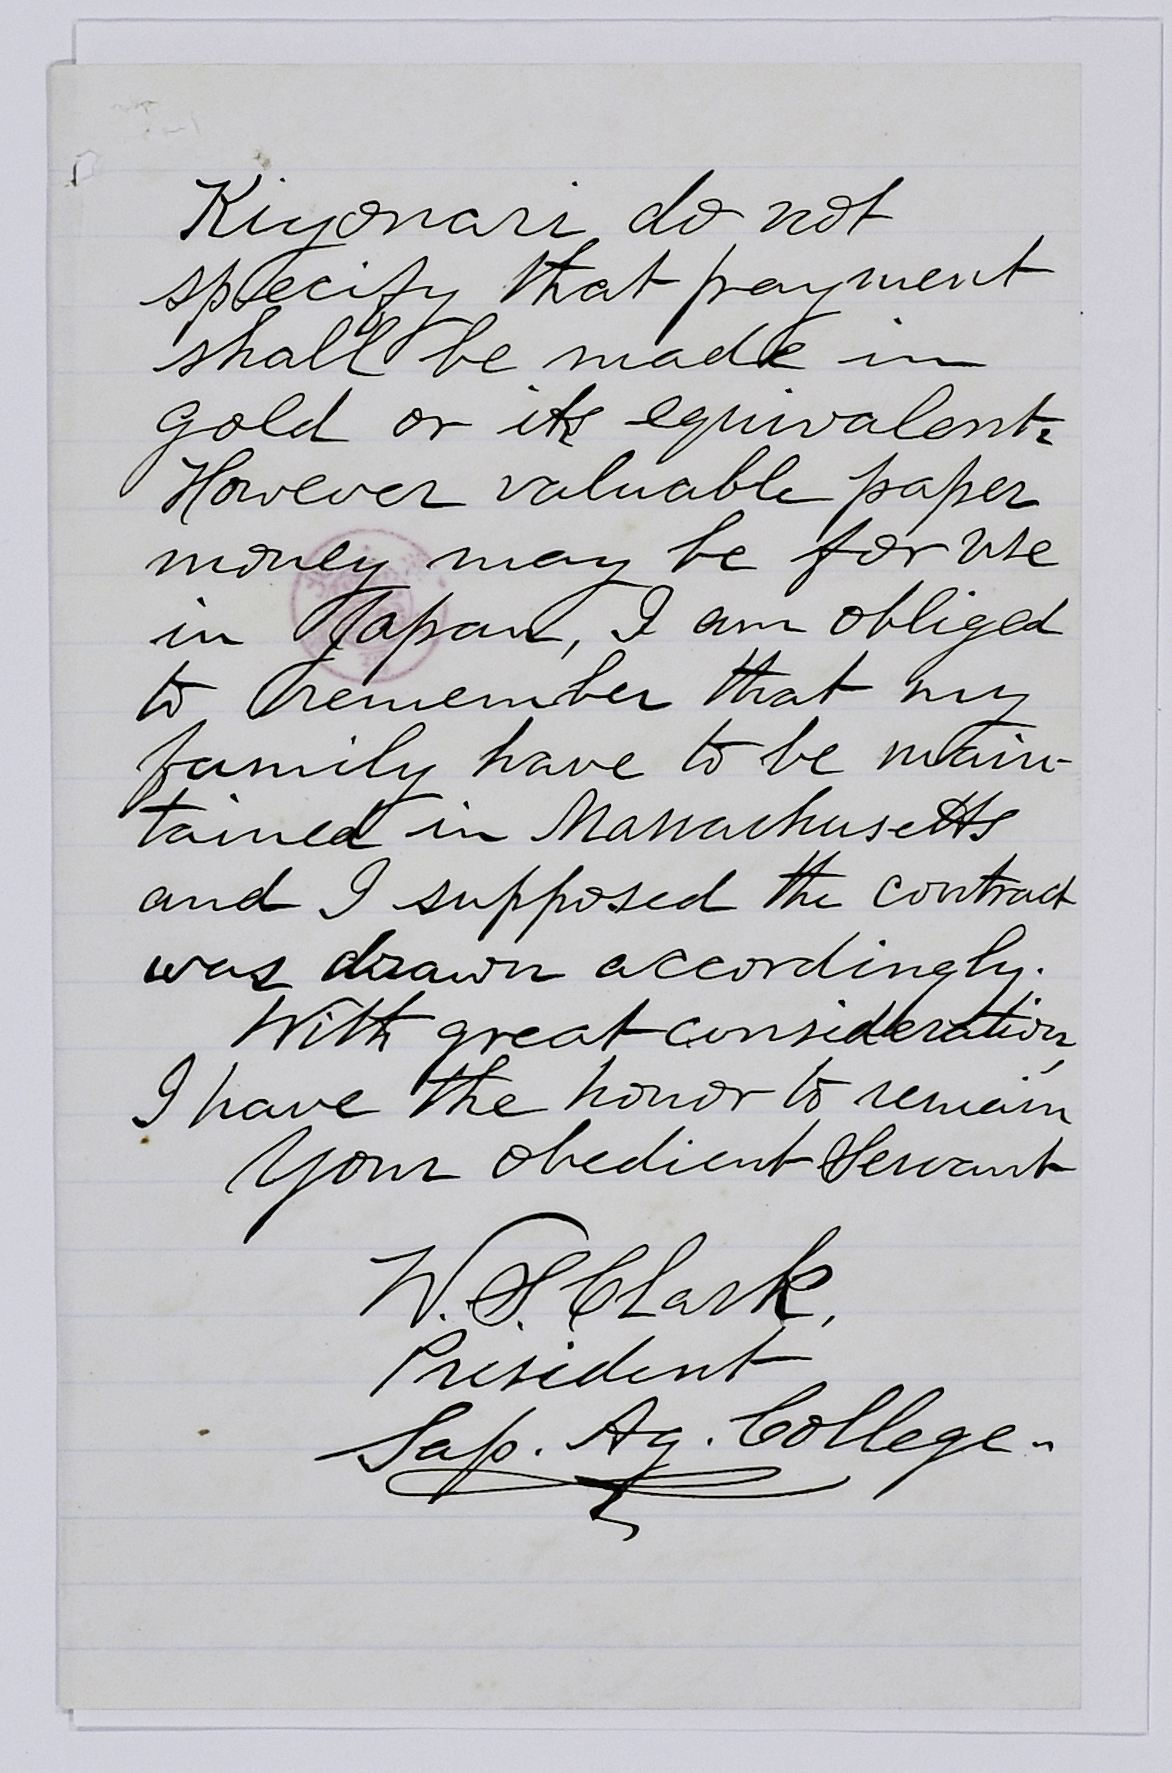 Kiyonari do not
specify that payment
shall be made in
gold or its equivalent.
However valuable paper
money may be for use
in Japan, I am obliged
to remember that my
family have to be main-
tained in Massachusetts
and I supposed the contract
was drawn accordingly.
With great consideration,
I have the honor to remain
Your obedient Servant
W. S. Clark,
President
Sap. Ag. College.